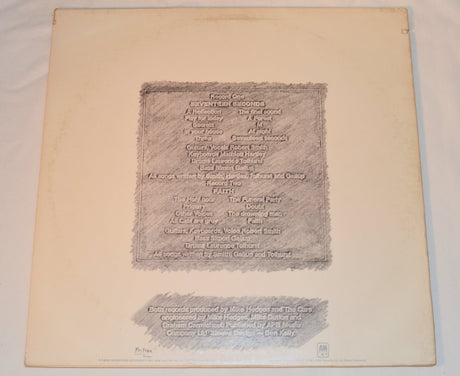 Record One
SEVENTEEN SECONDS
A Reflection The final sound
Play for today A Forest
Secrets M
In your house At night
Three Seventeen seconds
Guitars, Vocals Robert Smith
Keyboards Matthieu Hartley
Drums Laurence Tolhurst
Bass Simon Gallup
All songs written by Smith, Hartley, Tolhurst and Gallup
Record Two
FAITH
The Holy hour The Funeral Party
Primary Doubt
Other Voices The drowning man
All Cats are grey Faith
Guitars, Keyboards, Voice Robert Smith
Bass Simon Gallup
Drums Laurence Tolhurst
All songs written by Smith, Gallup and Tolhurst
Both records produced by Mike Hedges and The Cure,
engineered by Mike Hedges, Mike Dutton and
Graham Carmichael. Published by APB Music
Company Ltd. Sleeve Design — Ben Kelly.
A&M